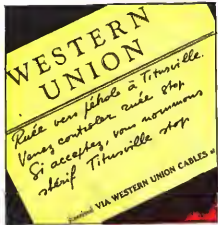 WESTERN
UNION
Ruée vers pétrole à Titusville.
Venez controler ruée stop
Si acceptez, vous nommons
shérif Titusville stop.
VIA WESTERN UNION CABLES